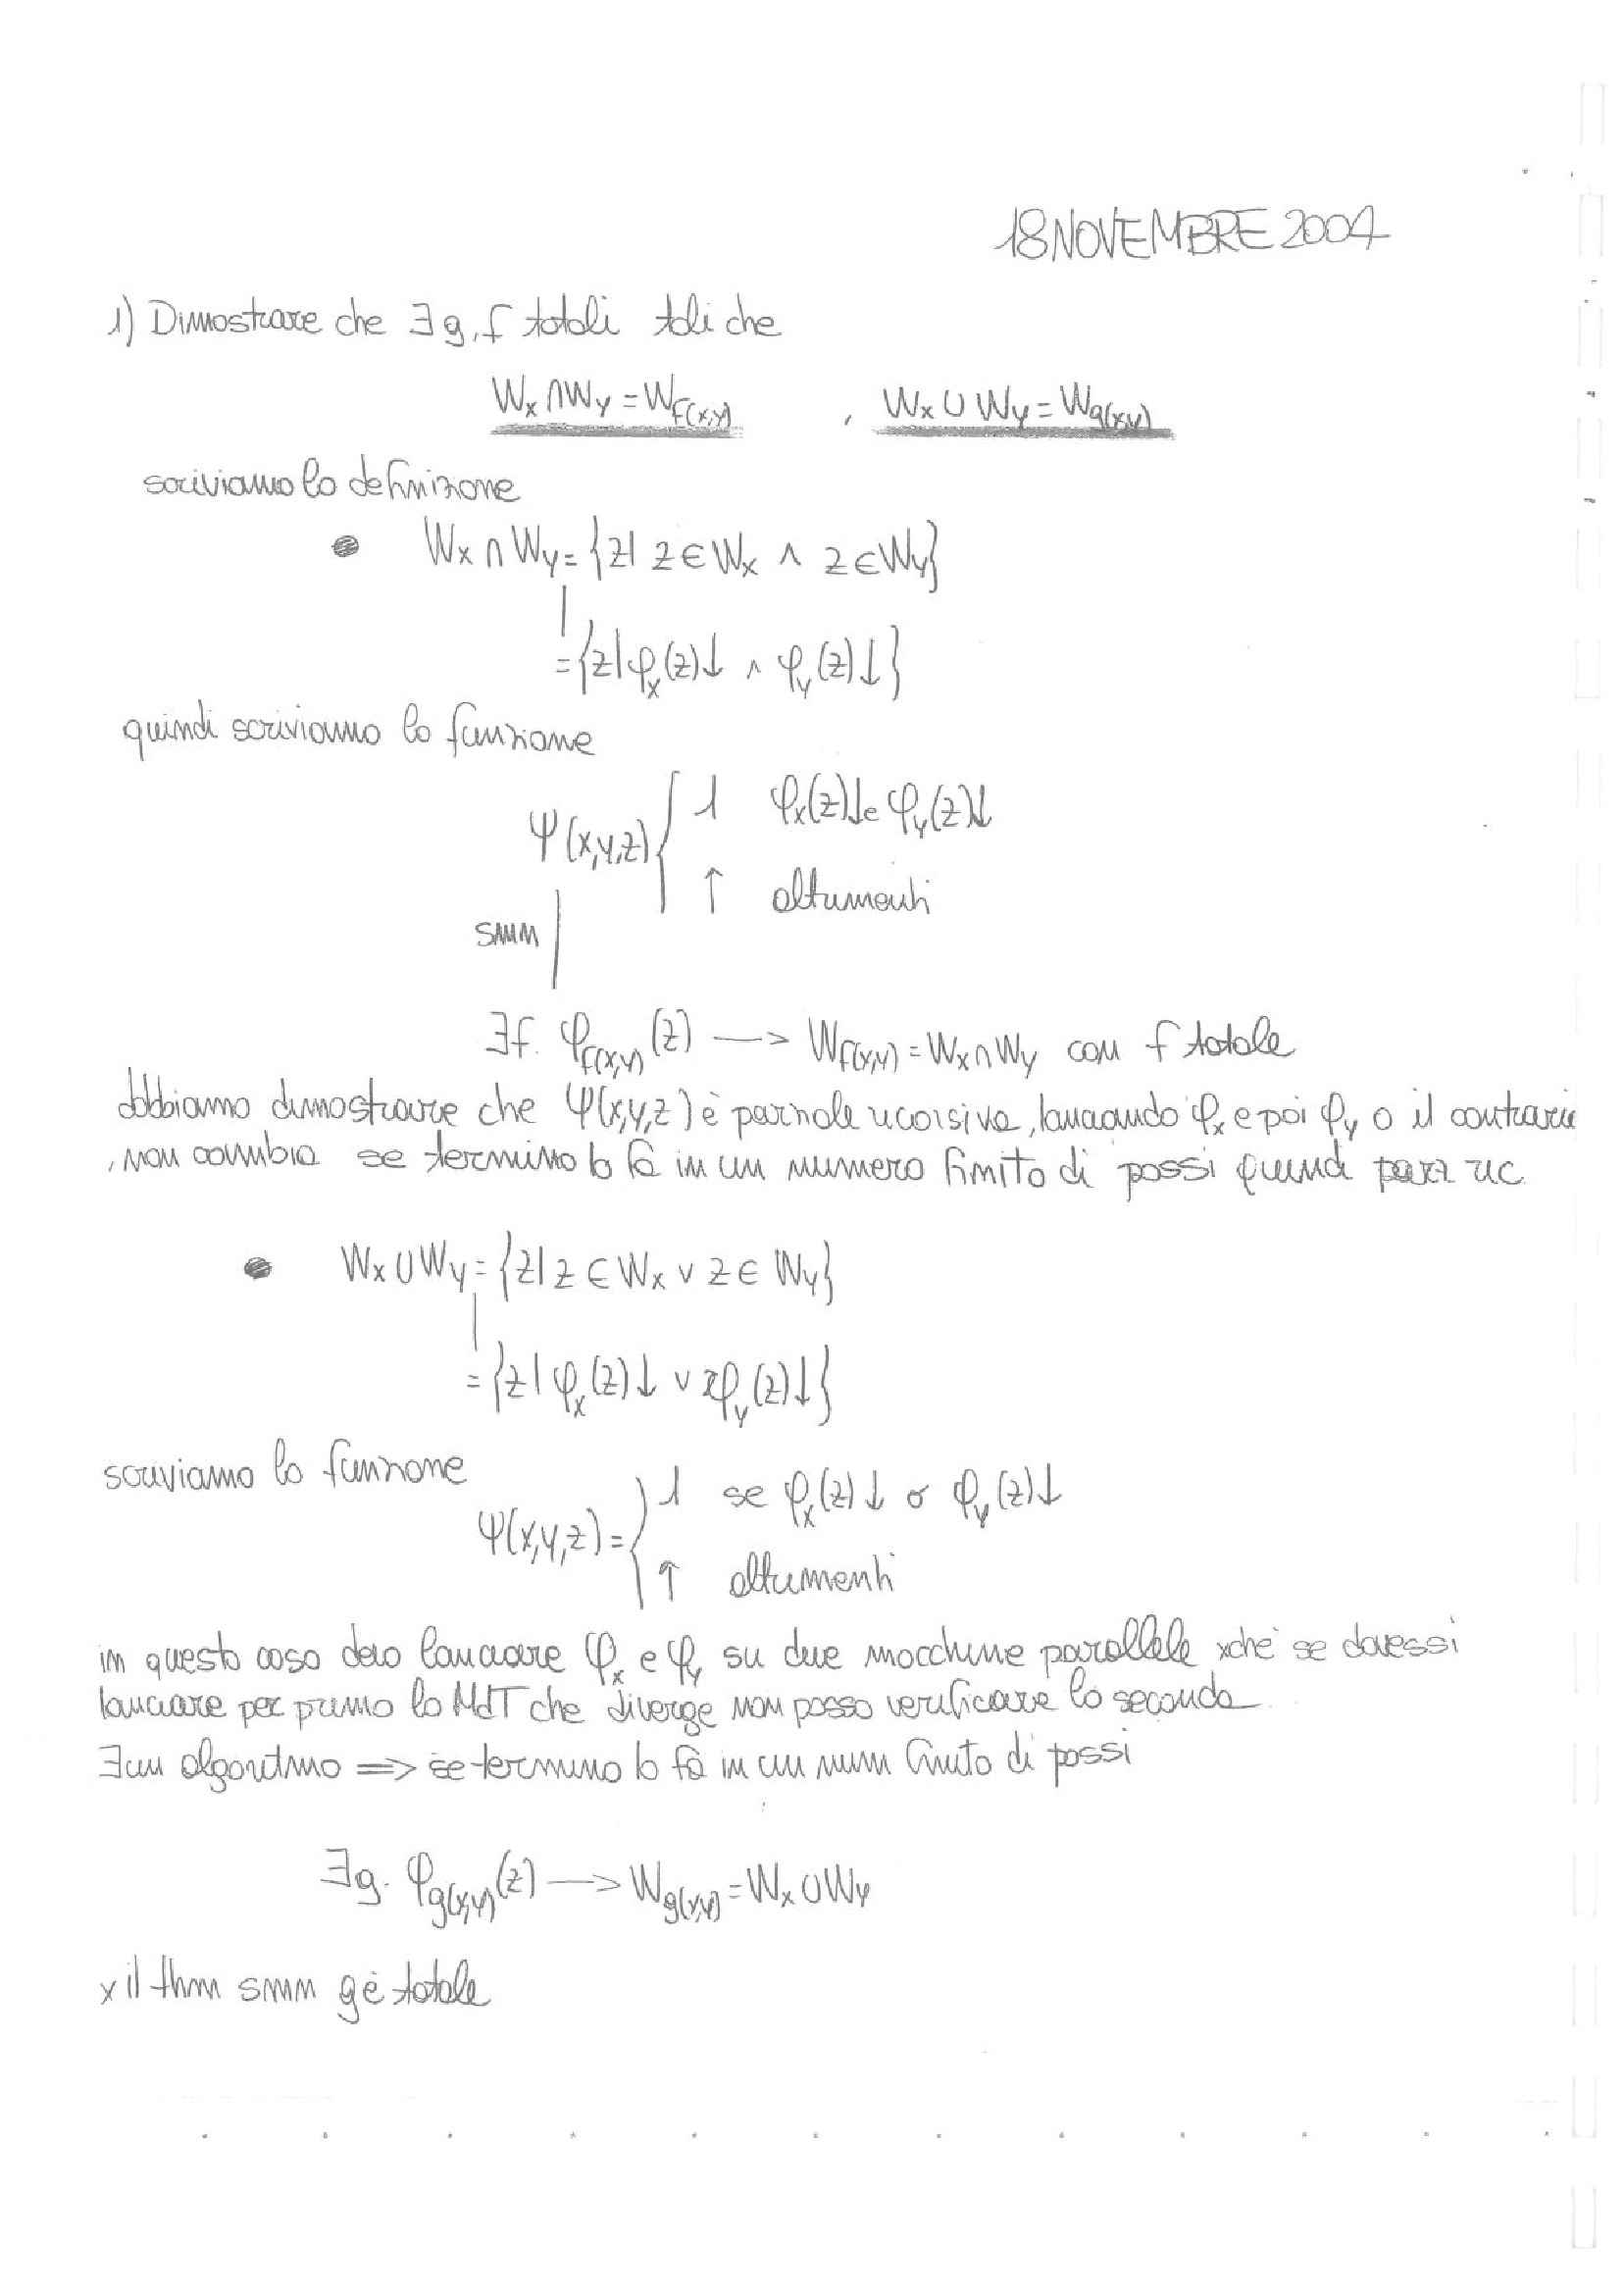 18 NOVEMBRE 2004
1) Dimostrare che ∃ g, f totali tali che
Wx ∩ Wy = Wf(x,y) , Wx ∪ Wy = Wg(x,y)
scriviamo la definizione
• Wx ∩ Wy = {z| z ∈ Wx ∧ z ∈ Wy}
= {z| φx(z)↓ ∧ φy(z)↓}
quindi scriviamo la funzione
ψ(x,y,z) { 1 φx(z)↓ e φy(z)↓
↑ altrimenti
smn
∃f. φf(x,y)(z) —> Wf(x,y) = Wx ∩ Wy con f totale
dobbiamo dimostrare che ψ(x,y,z) è parziale ricorsiva, lanciando φx e poi φy o il contrario
, non cambia se termina lo fà in un numero finito di passi quindi parz ric.
• Wx ∪ Wy = {z| z ∈ Wx ∨ z ∈ Wy}
= {z| φx(z)↓ ∨ φy(z)↓}
scriviamo la funzione
ψ(x,y,z) = { 1 se φx(z)↓ o φy(z)↓
↑ altrimenti
in questo caso devo lanciare φx e φy su due macchine parallele xchè se dovessi
lanciare per prima la MdT che diverge non posso verificare la seconda
∃ un algoritmo => se termina lo fà in un num finito di passi
∃g. φg(x,y)(z) —> Wg(x,y) = Wx ∪ Wy
x il thm smn g è totale